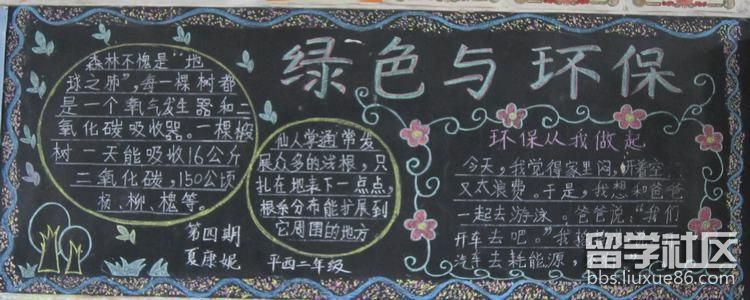 绿色与环保
森林不愧是“地
球之肺”,每一棵树都
是一个氧气发生器和二
氧化碳吸收器。一棵桉
树一天能吸收16公斤
二氧化碳,150公顷
杨、柳、槐等。
第四期
夏康妮
仙人掌通常发
展众多的浅根,只
扎在地表下一点点,
根系分布能扩展到
它周围的地方
平西二年级
环保从我做起
今天,我觉得家里闷,开着空
又太浪费。于是,我想和爸爸
一起去游泳。爸爸说:“我们
开车去吧。”我
汽车去耗能源,
留学社区
bbs.liuxue86.com